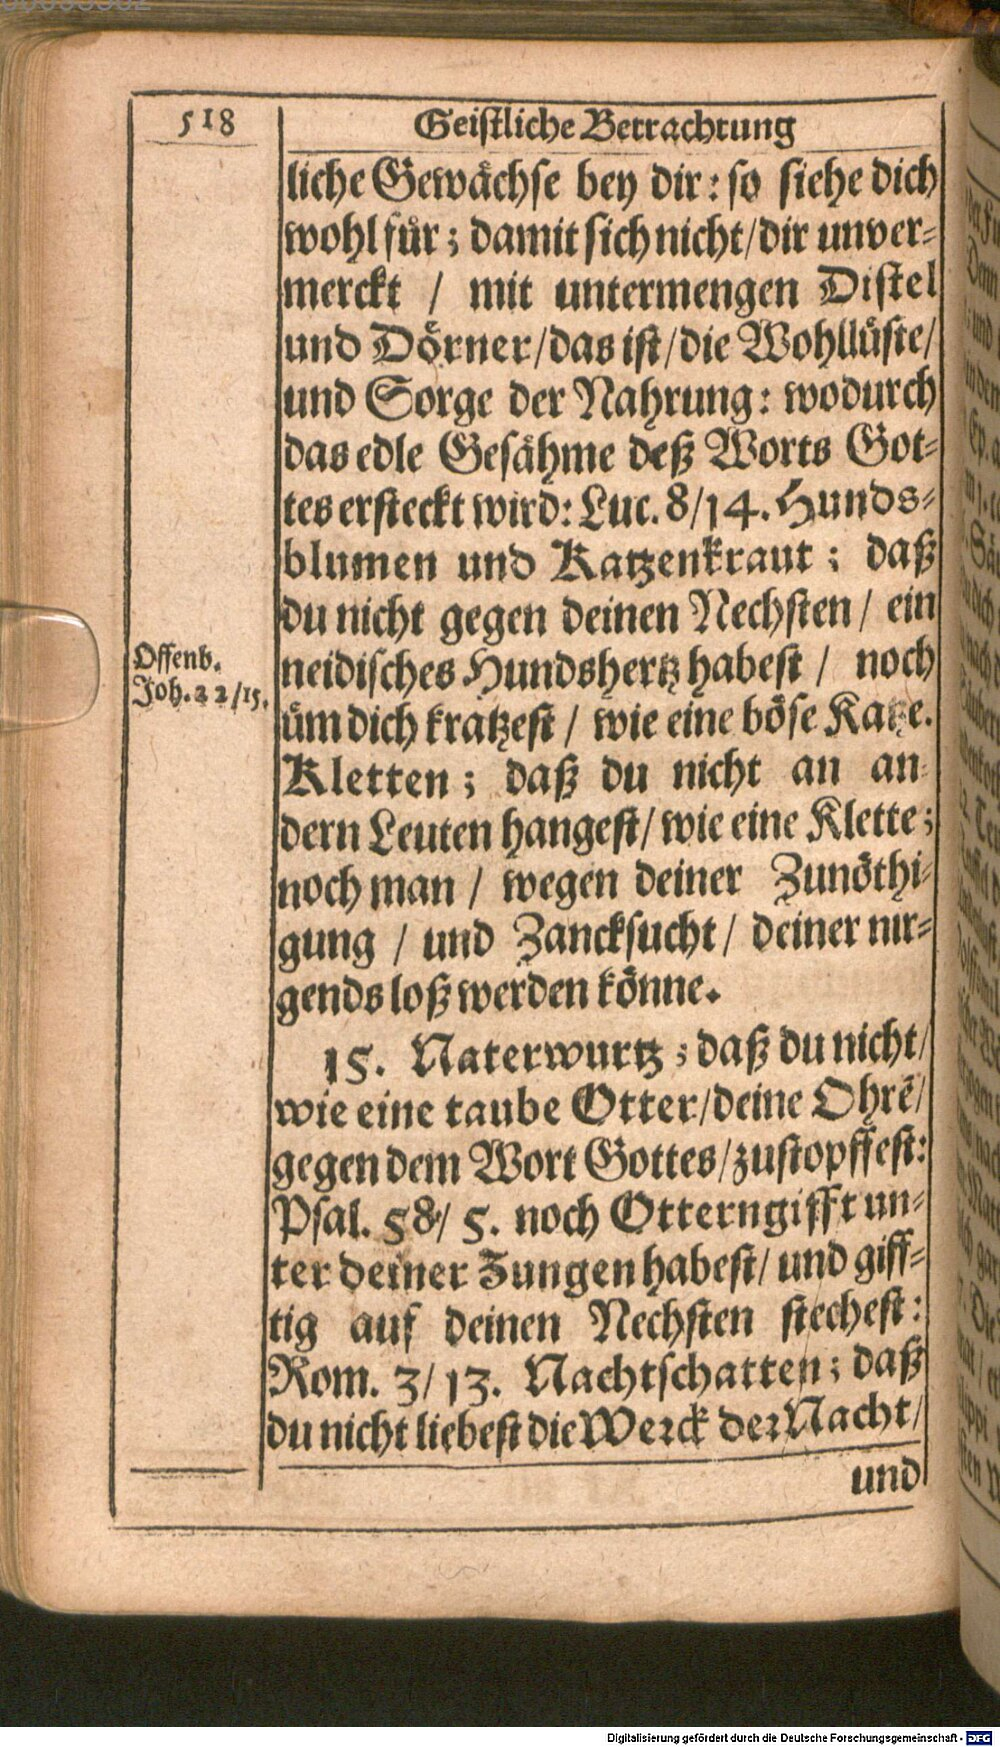 518
Geistliche Betrachtung
liche Gewächse bey dir: so siehe dich
wohl für; damit sich nicht/dir unver-
merckt / mit untermengen Distel
und Dörner/das ist/die Wohllüste/
und Sorge der Nahrung: wodurch
das edle Gesähme deß Worts Got-
tes ersteckt wird: Luc. 8/14. Hunds-
blumen und Katzenkraut; daß
du nicht gegen deinen Nechsten/ ein
neidisches Hundshertz habest / noch
üm dich kratzest / wie eine böse Katze.
Kletten; daß du nicht an an-
dern Leuten hangest/ wie eine Klette;
noch man / wegen deiner Zunöthi-
gung / und Zancksucht / deiner nir-
gends loß werden könne.
Offenb.
Joh. 22/15.
15. Naterwurtz; daß du nicht/
wie eine taube Otter/deine Ohrē/
gegen dem Wort Gottes/zustopffest:
Psal. 58/ 5. noch Otterngifft un-
ter deiner Zungen habest/ und giff-
tig auf deinen Nechsten stechest:
Rom. 3/13. Nachtschatten; daß
du nicht liebest die Werck der Nacht/
und
Digitalisierung gefördert durch die Deutsche Forschungsgemeinschaft - DFG